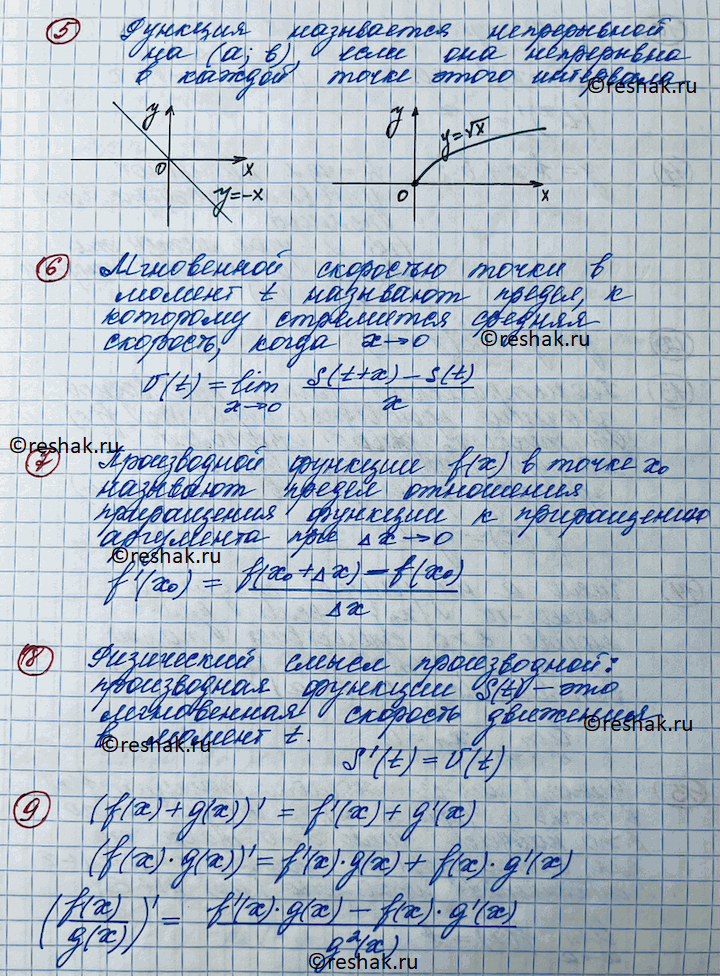 5 Функция называется непрерывной
на (а; в), если она непрерывна
в каждой точке этого интервала
©reshak.ru
y y
y=√x
0 x 0 x
y=-x
6 Мгновенной скоростью точки в
момент t называют предел, к
которому стремится средняя
скорость, когда x→0 ©reshak.ru
v(t) = lim S(t+x) - S(t)
x→0 x
©reshak.ru
7 Производной функции f(x) в точке x₀
называют предел отношения
приращения функции к приращению
аргумента при Δx→0
©reshak.ru
f'(x₀) = f(x₀+Δx) - f(x₀)
Δx
18 Физический смысл производной:
производная функции S(t) - это
мгновенная скорость движения
©reshak.ru
в момент t.
©reshak.ru
S'(t) = v(t)
9 (f(x) + g(x))' = f'(x) + g'(x)
(f(x) · g(x))' = f'(x) · g(x) + f(x) · g'(x)
(f(x)/g(x))' = f'(x) · g(x) - f(x) · g'(x)
g²(x)
©reshak.ru